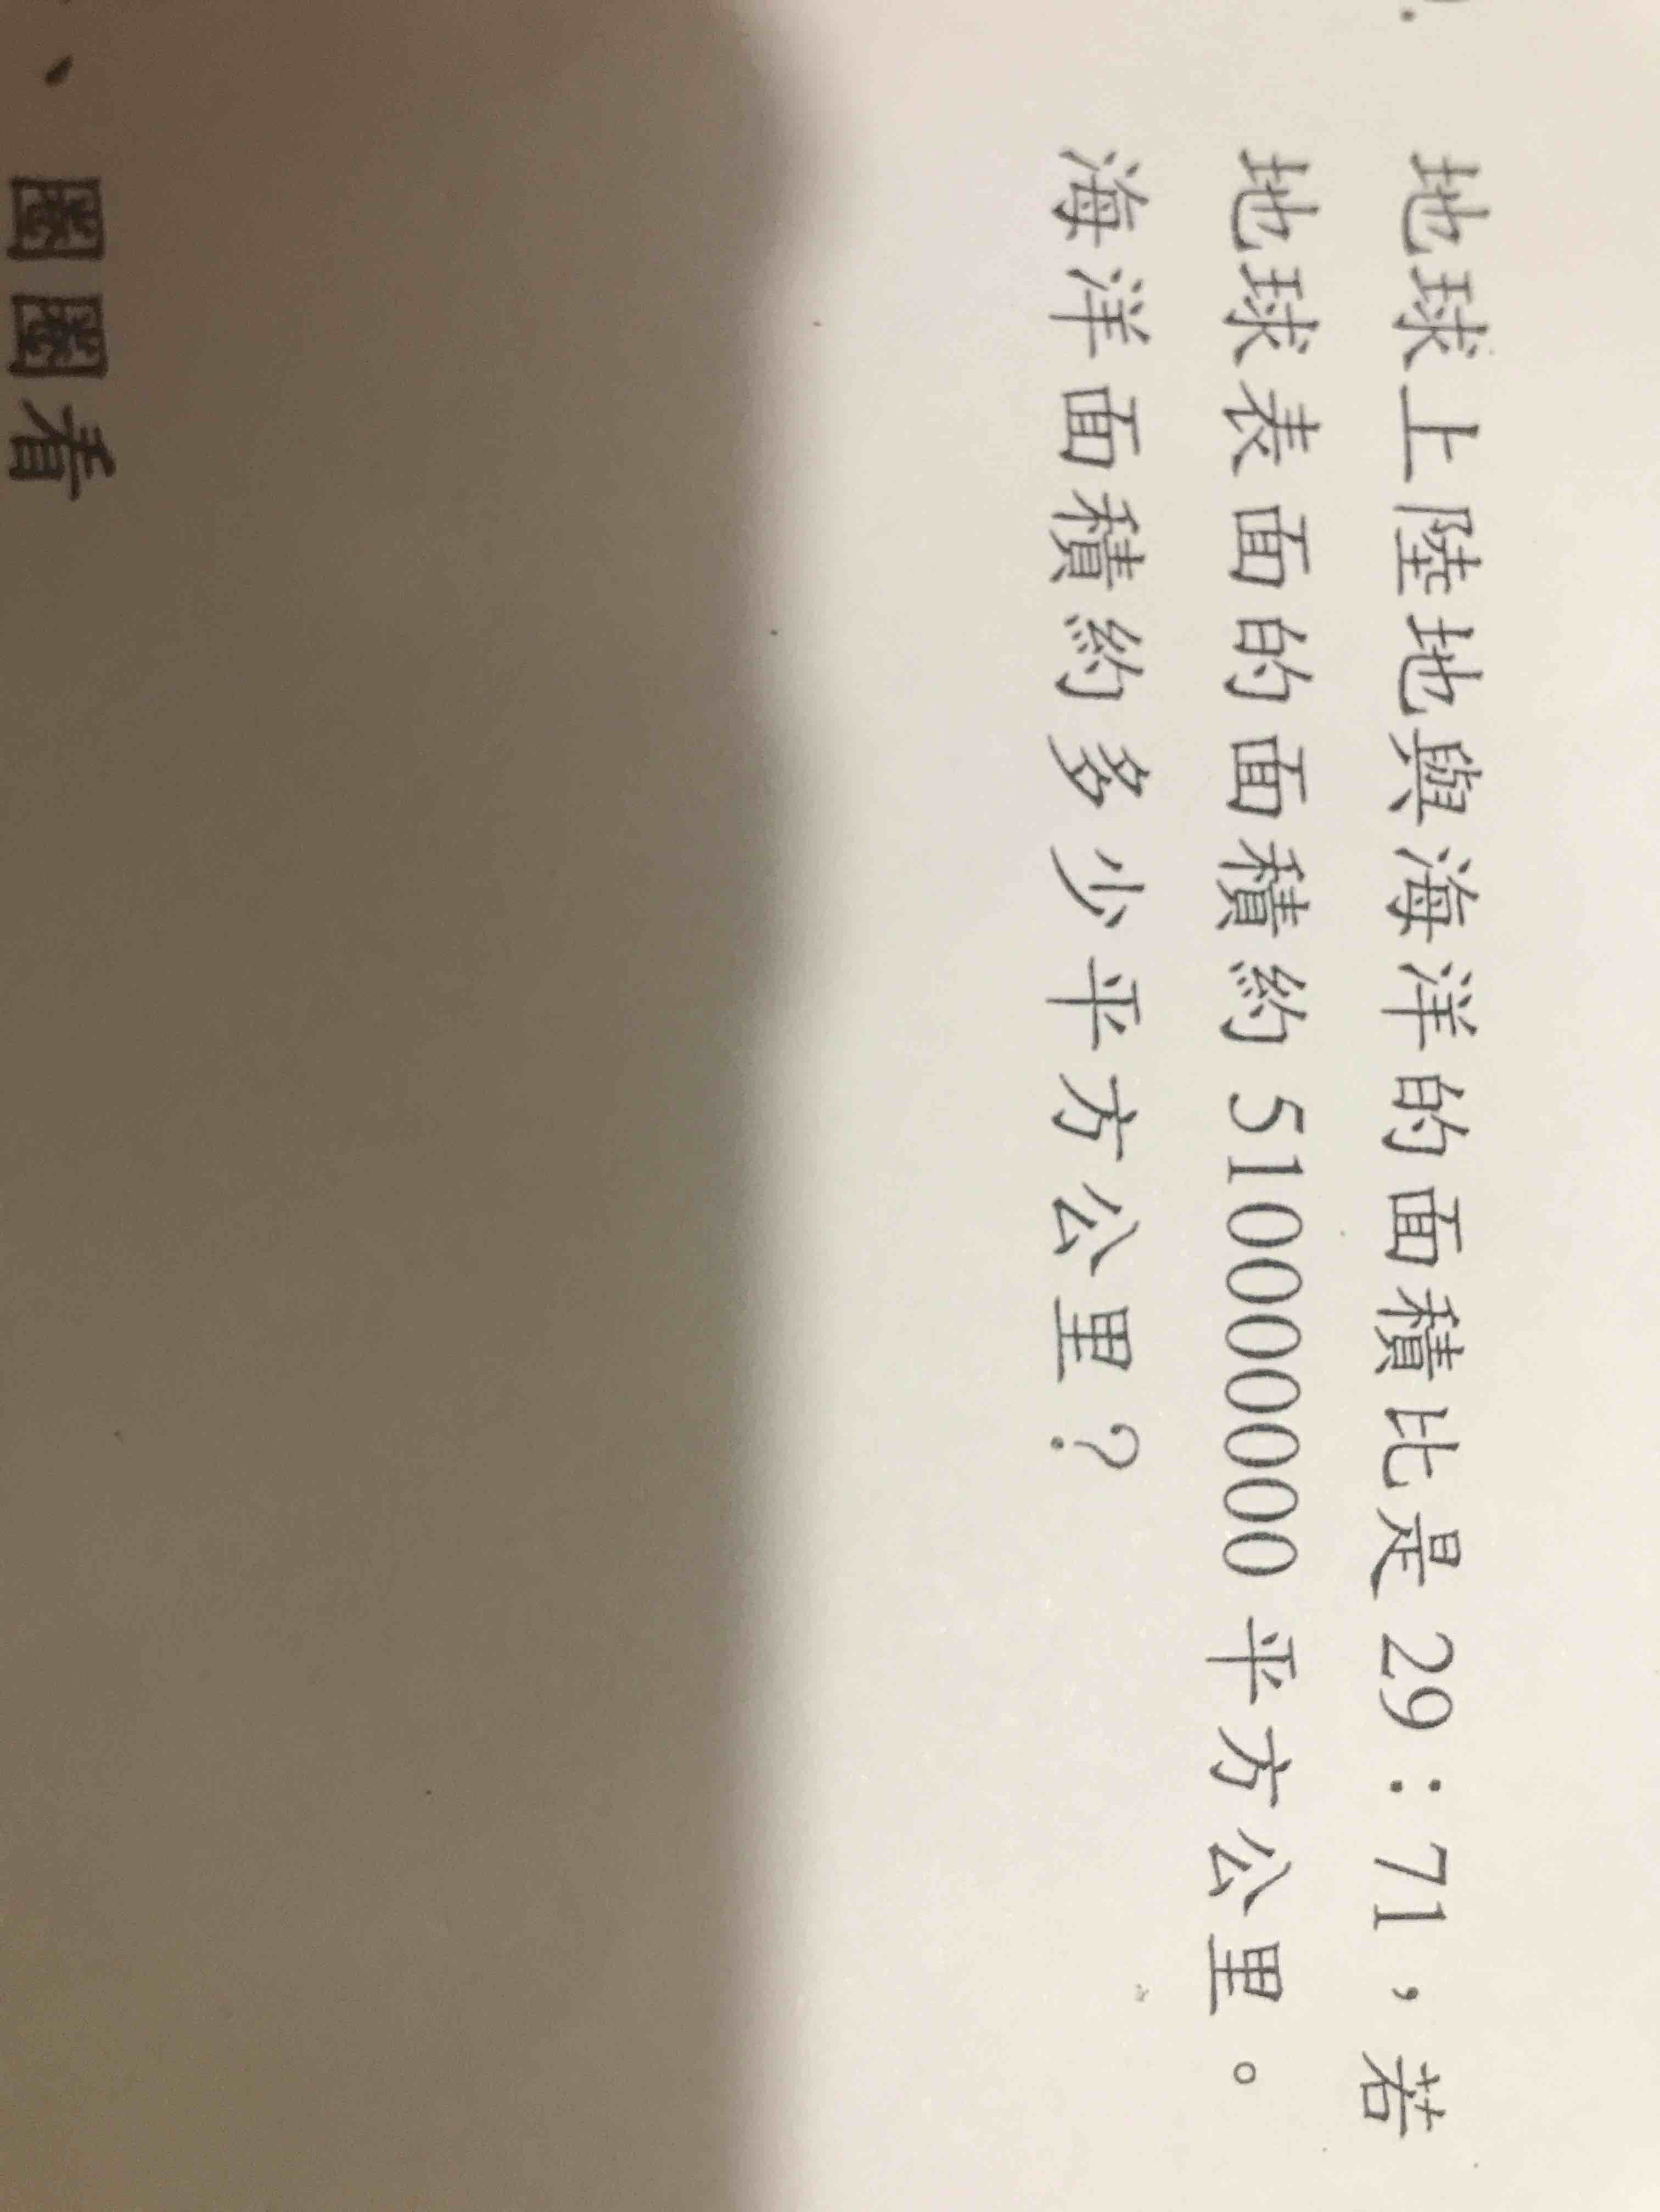 地球上陸地與海洋的面積比是 29：71，若
地球表面的面積約 510000000 平方公里。
海洋面積約多少平方公里？
、圈圈看